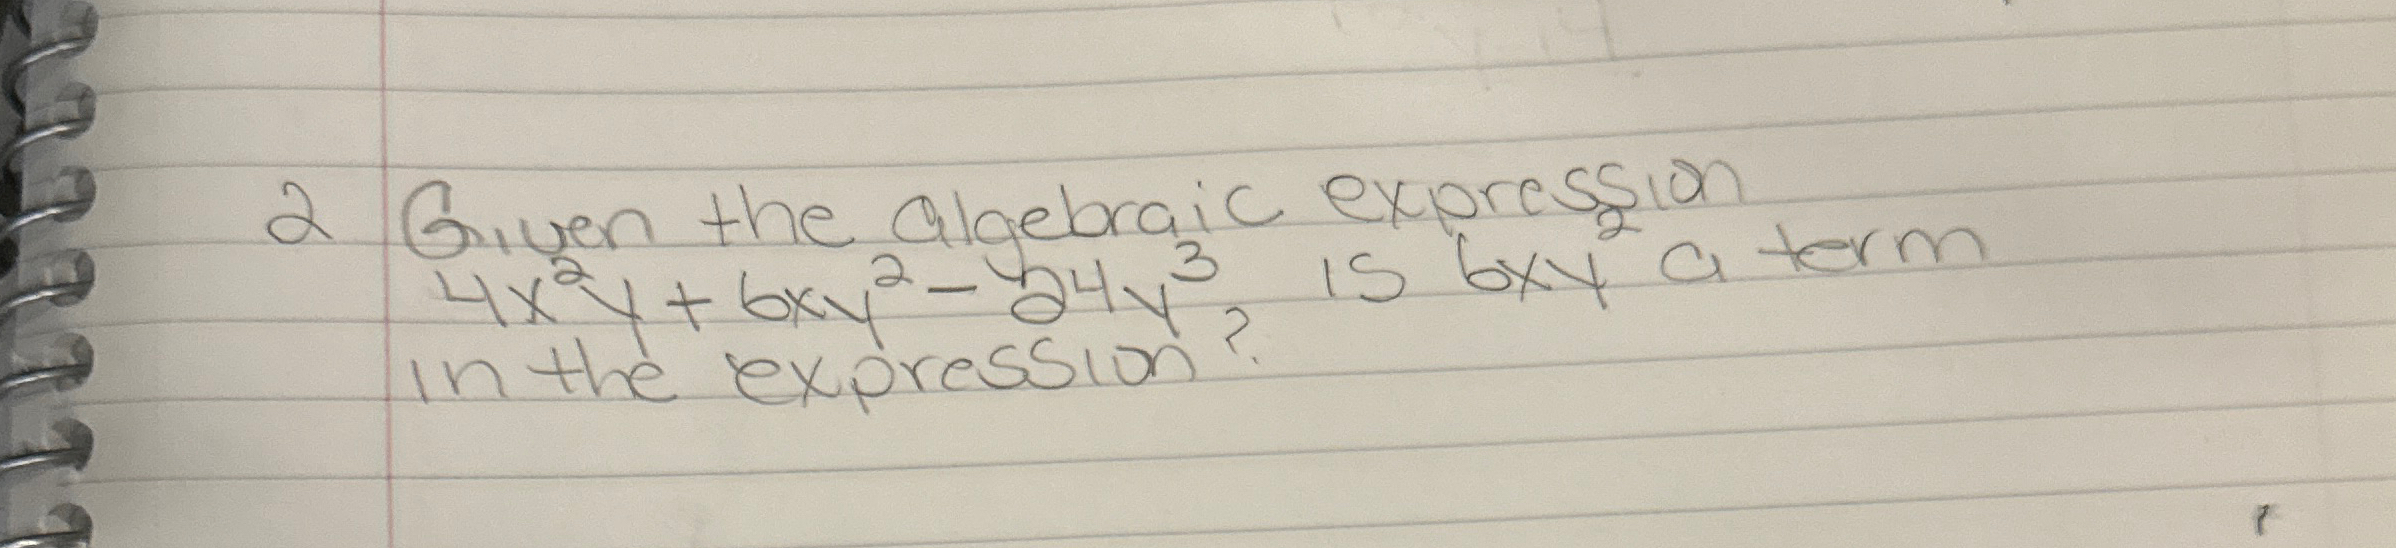 2 Given the algebraic expression
4x²y + 6xy² - 24y³, is 6xy² a term
in the expression?